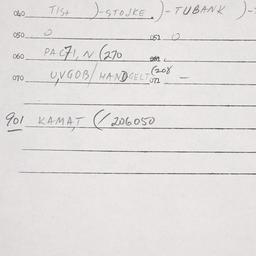 040 TIS+ )-STOJKE. )-TUBANK )-
050 0 051 0
060 PAC71, N (270
070 U, VGOB/HANDGELT (208 071 -
901 KAMAT (/206050